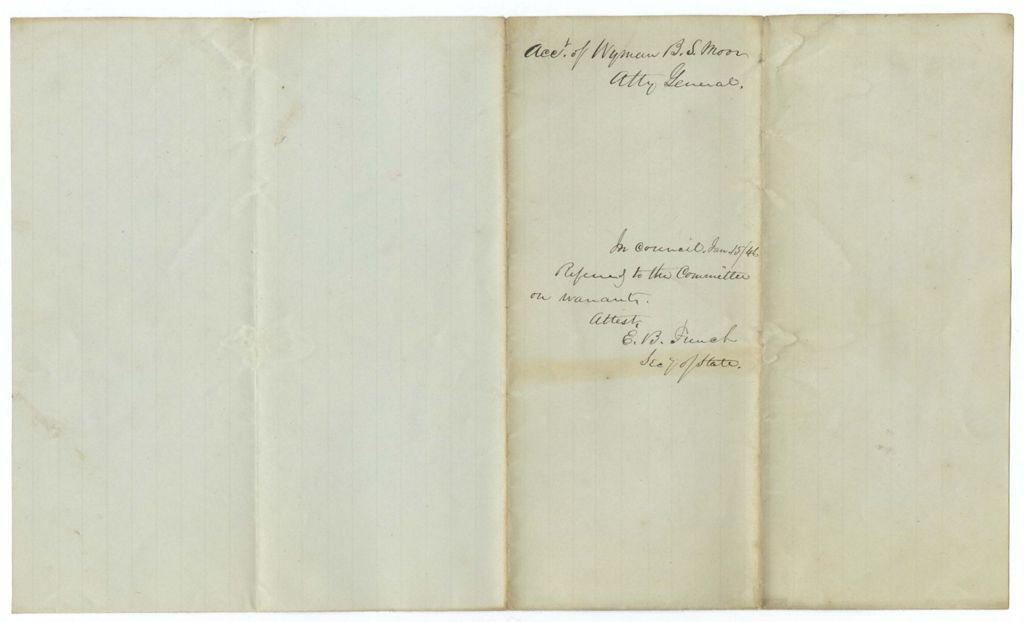 Acct. of Wyman B. S. Moor
Atty General.
In council. Jan 15/46
Referred to the Committee
on warrants.
Attest,
E. B. French
Secy of State.